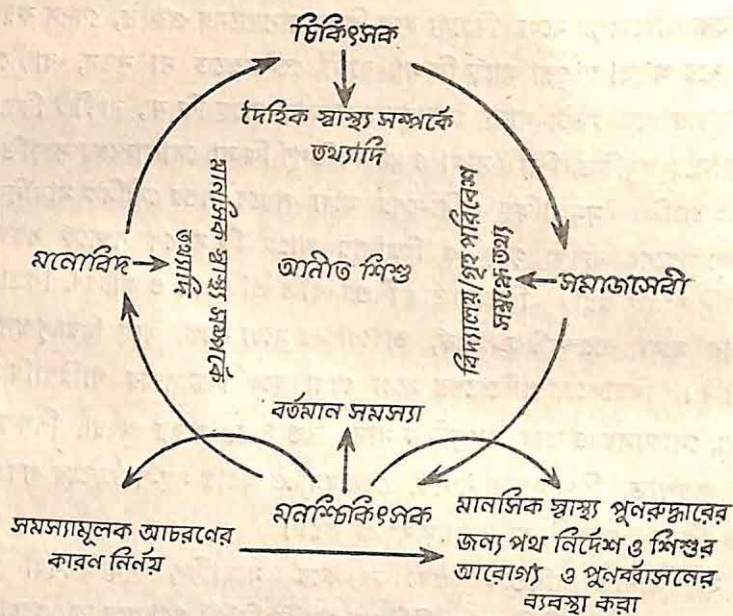 চিকিৎসক
দৈহিক স্বাস্থ্য সম্পর্কে
তথ্যাদি
মনোবিদ
মানসিক স্বাস্থ্য সম্পর্কে
তথ্যাদি
আনীত শিশু
বিদ্যালয়/গৃহ পরিবেশ
সম্বন্ধে তথ্য
সমাজসেবী
বর্তমান সমস্যা
মনশ্চিকিৎসক
সমস্যামূলক আচরণের
কারণ নির্ণয়
মানসিক স্বাস্থ্য পুনরুদ্ধারের
জন্য পথ নির্দেশ ও শিশুর
আরোগ্য ও পুনর্ব্বাসনের
ব্যবস্থা করা